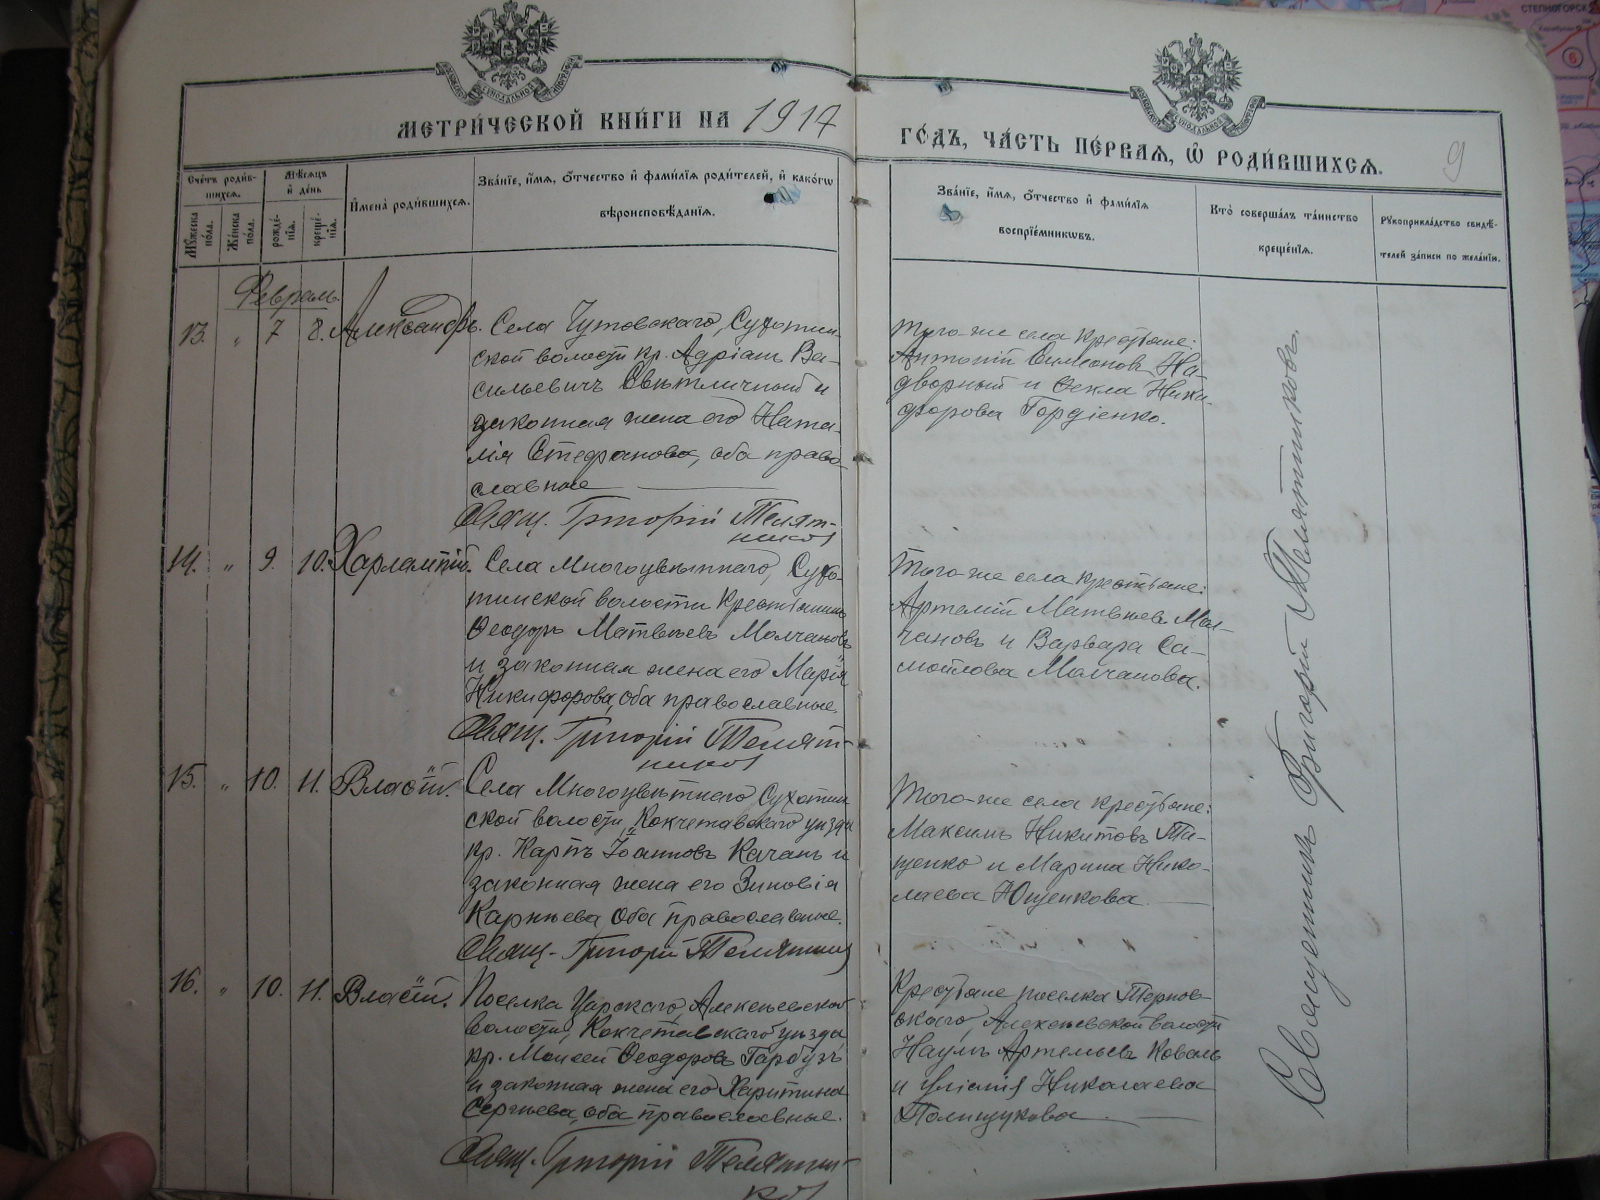 МЕТРИ́ЧЕСКОЙ КНИ́ГИ НА 1917
ГО́ДЪ, ЧА́СТЬ ПЕ́РВАЯ, Ѡ҆ РОДИ́ВШИХСЯ.
9
Сче́тъ роди́в-
шихся.
Мѣ́сяцъ
и҆ де́нь
Му́жеска
по́ла.
Же́нска
по́ла.
рожде́-
нїя.
креще́-
нїя.
И҆мена̀ роди́вшихся.
Зва́нїе, и҆́мя, ѻ҆́тчество и҆ фами́лїя роди́телей, и҆ како́гѡ
вѣроисповѣ́данїя.
Зва́нїе, и҆́мя, ѻ҆́тчество и҆ фами́лїя
воспрїе́мникѡвъ.
Кто̀ соверша́лъ та́инство
креще́нїя.
Рукоприкла́дство свидѣ́-
телей за́писи по жела́нїю.
Февраль
13. " 7 8. Александръ.
Села Чутовскаго, Сухотин-
ской волости кр. Адріанъ Ва-
сильевичъ Свѣтличный и
законная жена его Ната-
лія Стефанова, оба право-
славные
Свящ. Григорій Телят-
никовъ
Того-же села крестьяне:
Антоній Симоновъ На-
дворный и Фекла Ники-
форова Гордіенко.
14. " 9. 10. Харлампій.
Села Многоцвѣтнаго, Сухо-
тинской волости крестьянинъ
Феодоръ Матвѣевъ Молчановъ
и законная жена его Марія
Никифорова, оба православные
Свящ. Григорій Телят-
никовъ
Того-же села крестьяне:
Артемій Матвѣевъ Мол-
чановъ и Варвара Са-
мойлова Молчанова.
15. " 10. 11. Власій.
Села Многоцвѣтнаго, Сухотин-
ской волости, Кокчетавскаго уѣзда
кр. Карпъ Іоанновъ Качанъ и
законная жена его Зиновія
Карнѣева оба православные.
Свящ. Григорій Телятник
Того-же села крестьяне:
Максимъ Никитовъ Ти-
щенко и Марина Нико-
лаева Ющенкова.
16. " 10. 11. Власій.
Поселка Царскаго, Алексѣевской
волости, Кокчетавскаго уѣзда,
кр. Моисей Феодоровъ Гарбузъ
и законная жена его Харитина
Сергѣева, оба православные.
Свящ. Григорій Телятни-
ковъ
Крестьяне поселка Тернов-
скаго, Алексѣевской волости
Наумъ Артемьевъ Коваль
и Николаева
Полищукова
Священникъ Григорій Телятниковъ.
СТЕПНОГОРСК